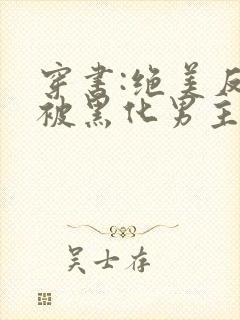 穿书:绝美反
被黑化男主
吴士存